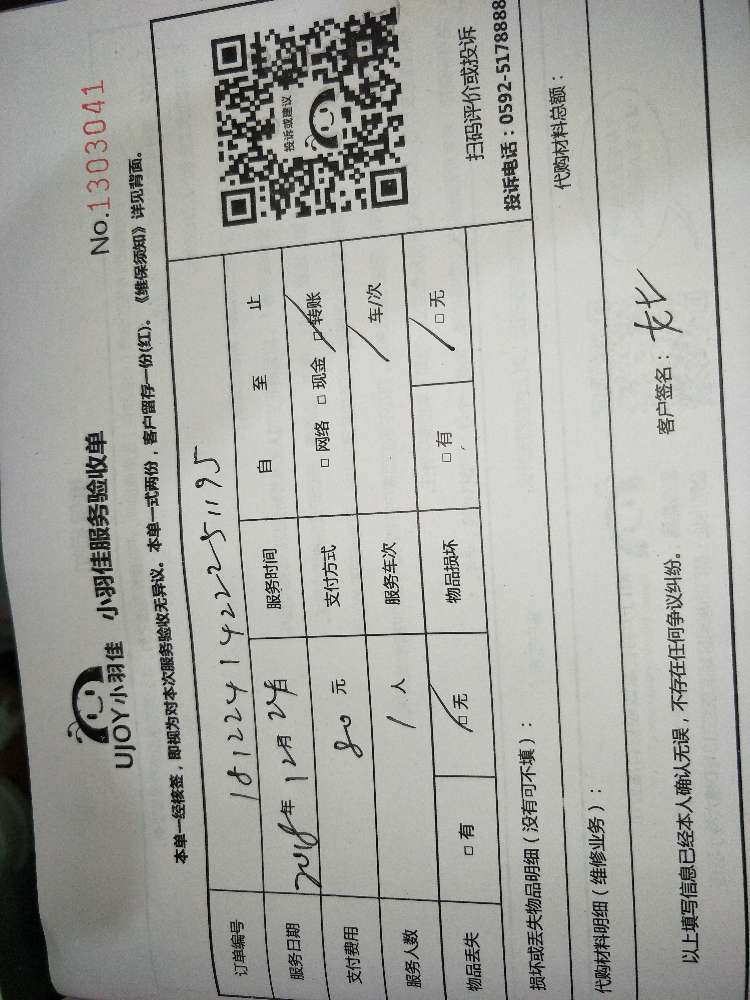 UJOY小羽佳 小羽佳服务验收单 No.1303041
本单一经核签，即视为对本次服务验收无异议。本单一式两份，客户留存一份(红)。《维保须知》详见背面。
订单编号 1812241422251195
服务日期 2018年12月24日 服务时间 自 至 止
支付费用 80元 支付方式 □网络 □现金 □转账
服务人数 1人 服务车次 车/次
物品丢失 □有 □无 物品损坏 □有 □无
投诉或建议
扫码评价或投诉
投诉电话：0592-5178888
损坏或丢失物品明细（没有可不填）：
代购材料明细（维修业务）： 代购材料总额：
以上填写信息已经本人确认无误，不存在任何争议纠纷。 客户签名：